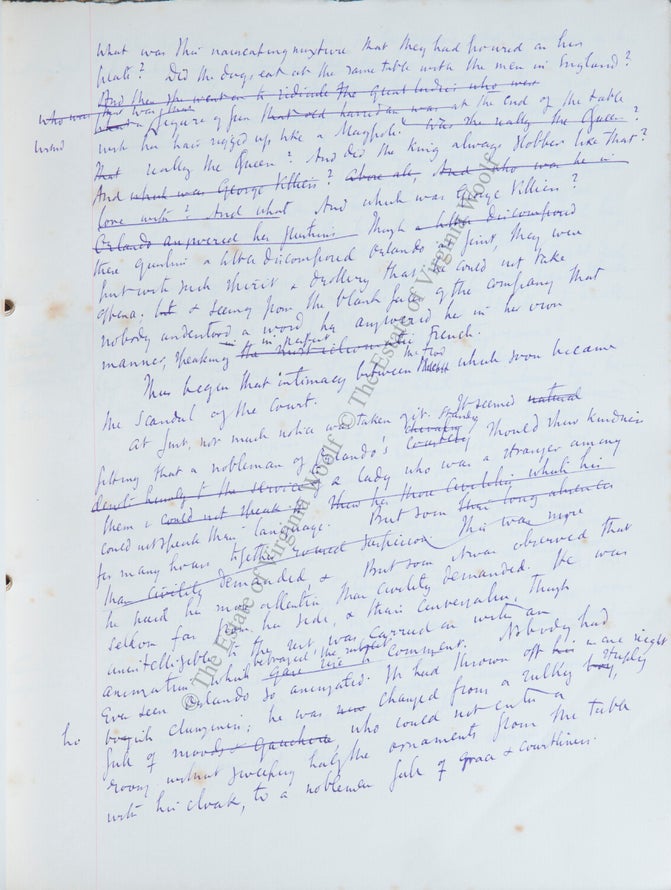 What was this nauseating mixture that they had poured on her
plate? Did the dogs eat at the same table with the men in England?
And then she went on to ridicule the great ladies who were
who was this was that
Was a figure of fun that old harridan was at the end of the table
with her hair rigged up like a Maypole? Was she really the Queen?
that really the Queen? And did the King always slobber like that?
And which was George Villiers? Above all, And who was he in
love with? And what And which was George Villiers?
Orlando answered her questions Though a little discomposed
these questions a little discomposed Orlando at first, they were
put with such spirit & drollery that he could not take
offence. & seeing from the blank faces of the company that
nobody understood a word, he answered her in her own
manner, speaking in perfect French.
Thus began that intimacy between the two which soon became
the scandal of the court.
At first, not much notice was taken of it. It seemed natural
fitting that a nobleman of Orlando's should show kindness
to a lady who was a stranger among
them & could not speak
could not speak their language. But soon
for many hours together roused suspicion. This was more
than civility demanded, & But soon it was observed that
he paid her more attention than civility demanded. He was
seldom far from her side, & their conversation, though
unintelligible to the rest, was carried on with an
animation which betrayed gave rise to comment. Nobody had
Ever seen Orlando so animated. He had thrown off his in one night
boyish clumsiness; he was changed from a sulky boy,
full of moods & who could not enter a
ho
room without sweeping half the ornaments from the table
with his cloak, to a nobleman full of grace & courtliness.
© The Estate of Virginia Woolf © The Estate of Virginia Woolf